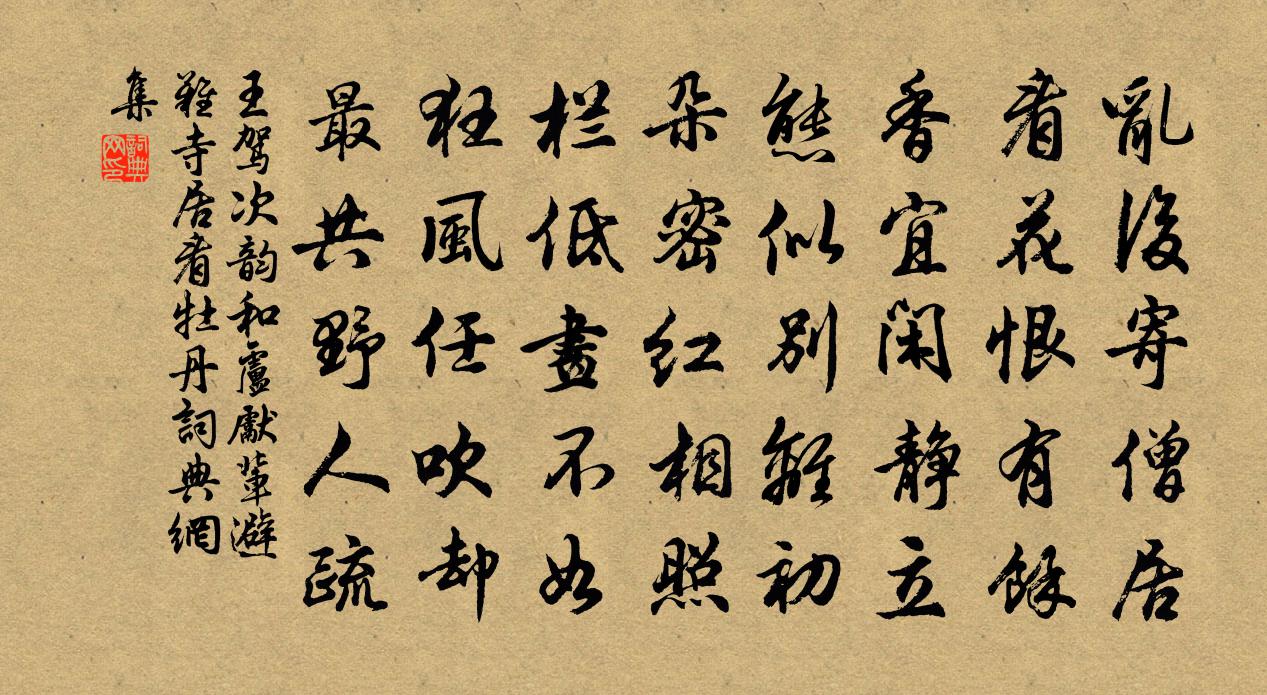 亂後寄僧居
看花恨有餘
香宜閑静立
態似别離初
朵密紅相照
栏低畫不如
狂風任吹却
最共野人疏
王駕次韵和盧獻輩避
難寺居看牡丹詞典網
集
詞典网印